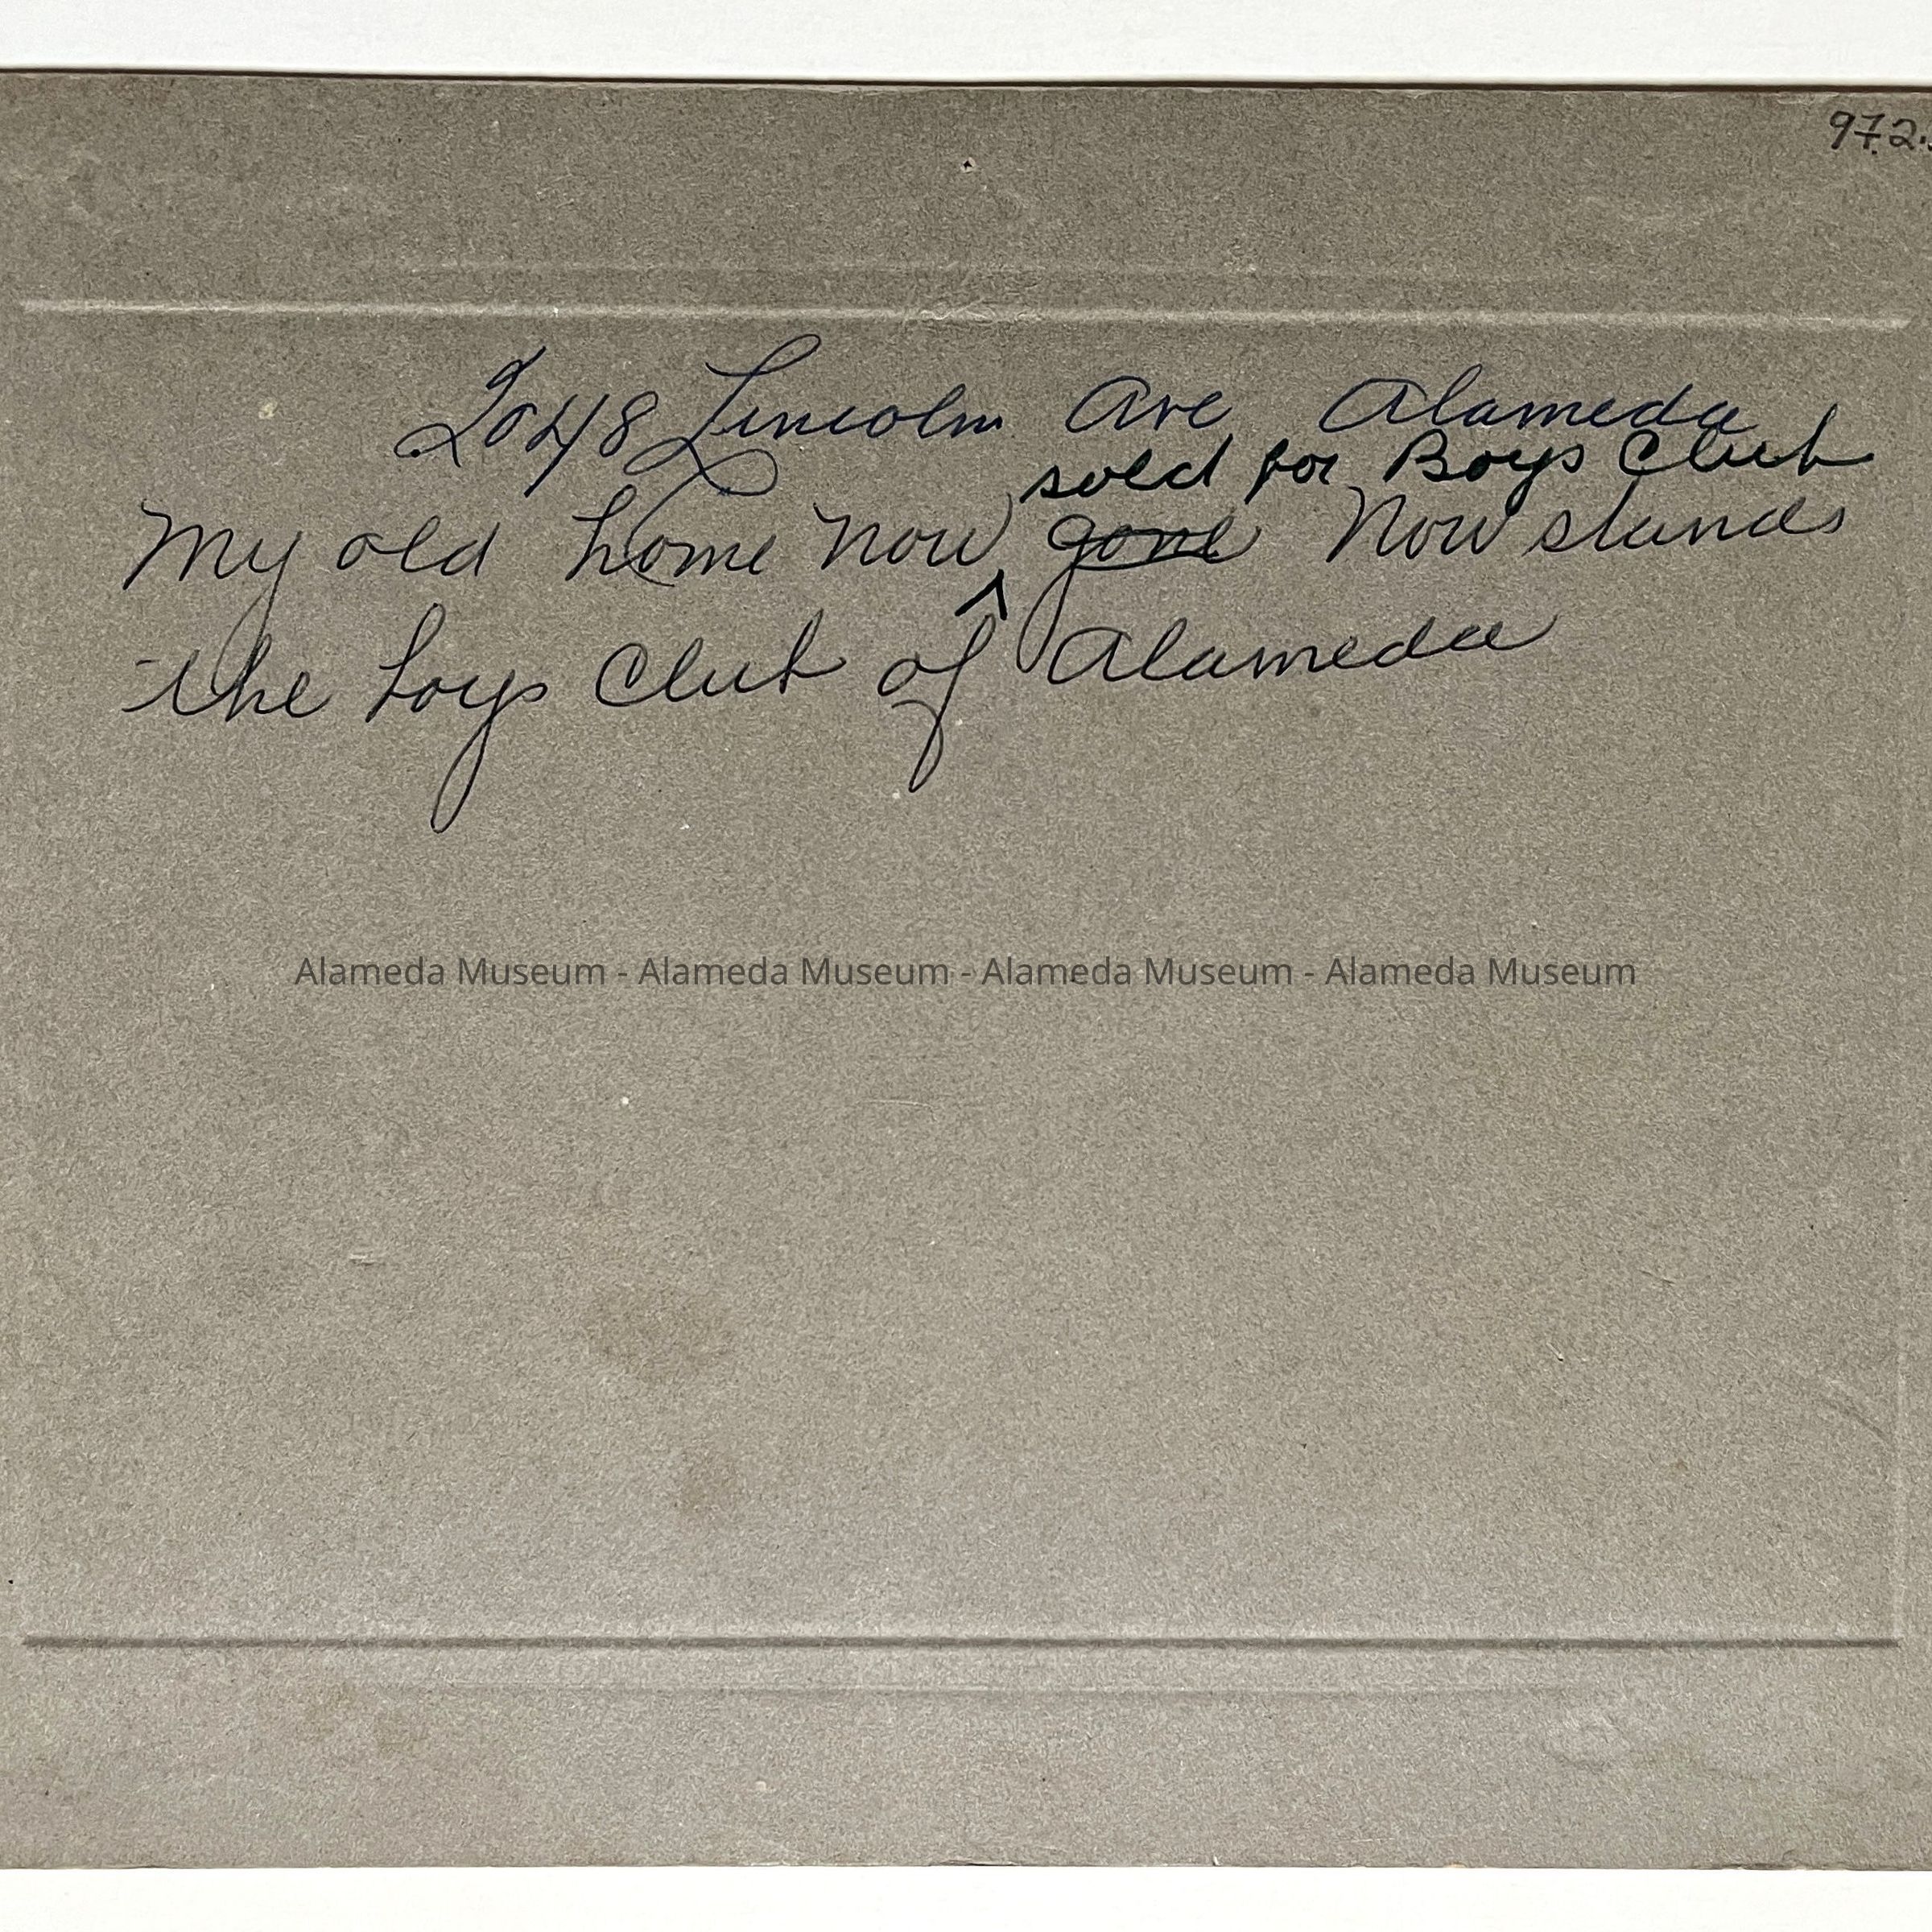 97.2.
2048 Lincoln Ave Alameda
sold for Boys Club
My old home now ^ gone Now stands
the boys Club of Alameda
Alameda Museum - Alameda Museum - Alameda Museum - Alameda Museum